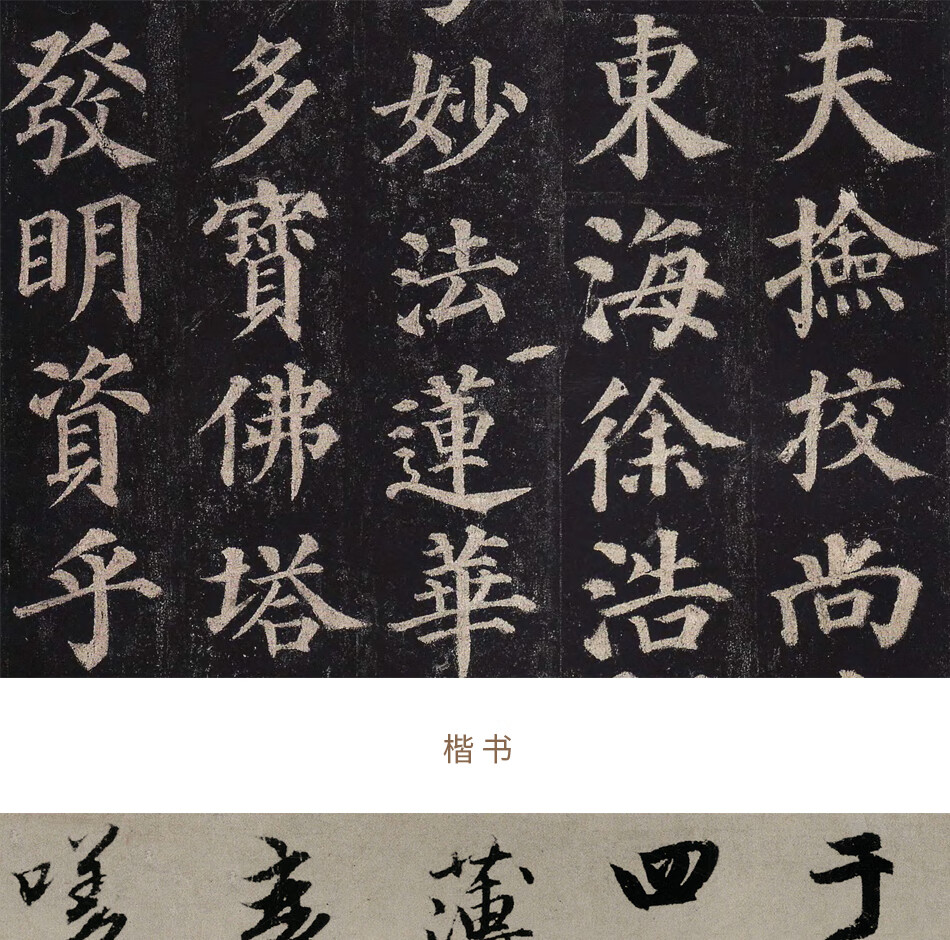 夫撿挍尚
東海徐浩
妙法蓮華
多寶佛塔
發明資乎
楷书
于
四
薄